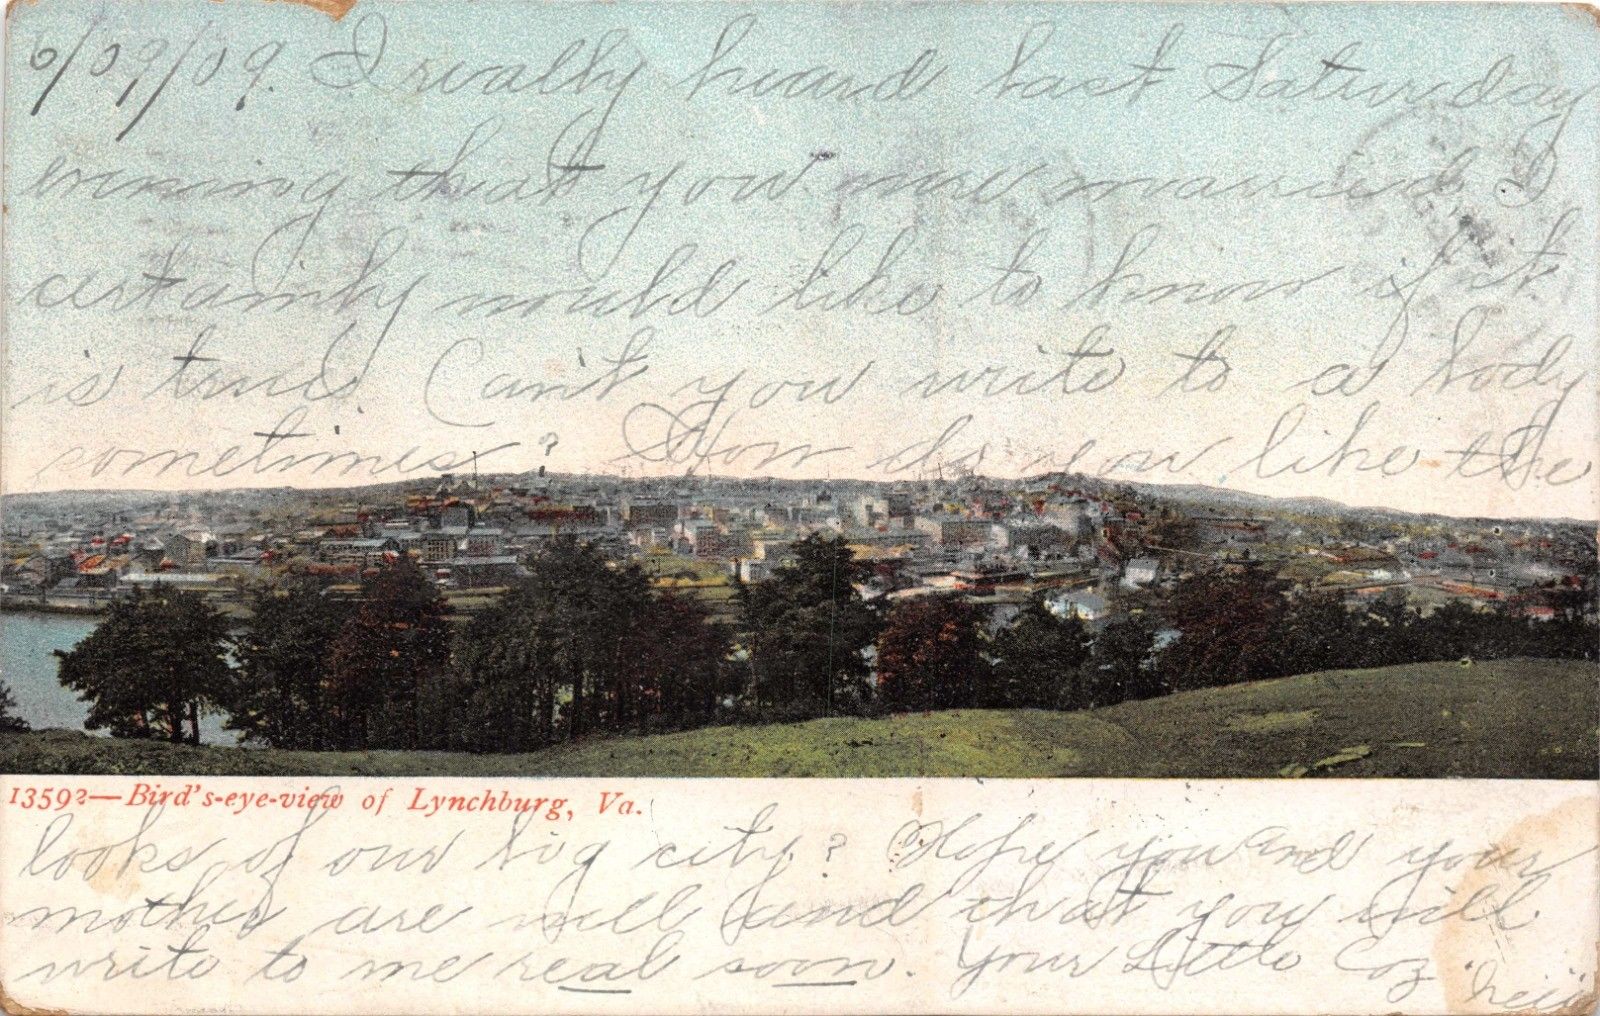 6/09/09. I really heard last Saturday
evening that you were married. I
certainly would like to know if it
is true. Can't you write to a body
sometimes? How do you like the
13592—Bird's-eye-view of Lynchburg, Va.
looks of our big city? Hope you and your
mother are well and that you will
write to me real soon. Your Little Coz